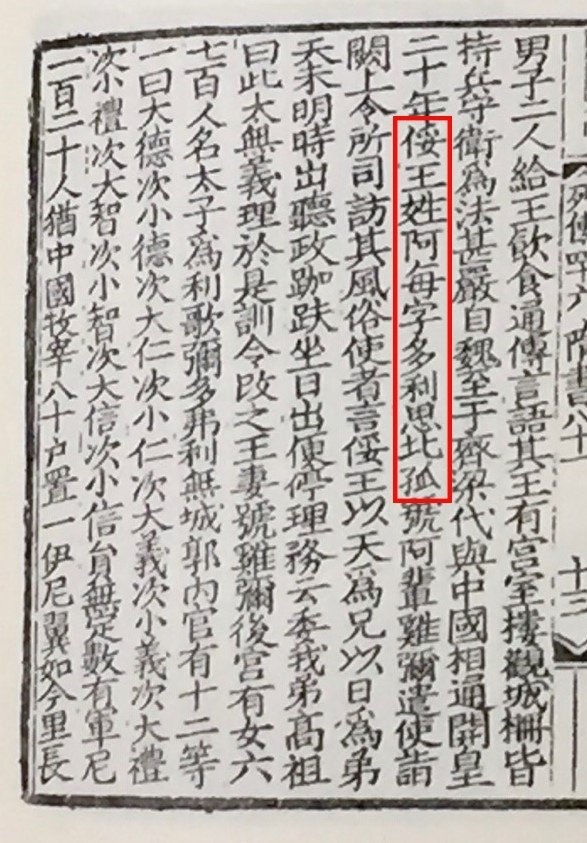 列傳四六 隋書八十一
十三
男子二人給王飮食通傳言語其王有宮室樓觀城柵皆
持兵守衛爲法甚嚴自魏至于齊梁代與中國相通開皇
二十年俀王姓阿每字多利思比孤號阿輩雞彌遣使詣
闕上令所司訪其風俗使者言俀王以天爲兄以日爲弟
天未明時出聽政跏趺坐日出便停理務云委我弟高祖
曰此太無義理於是訓令改之王妻號雞彌後宮有女六
七百人名太子爲利歌彌多弗利無城郭內官有十二等
一曰大德次小德次大仁次小仁次大義次小義次大禮
次小禮次大智次小智次大信次小信員無定數有軍尼
一百二十人猶中國牧宰八十戶置一伊尼翼如今里長